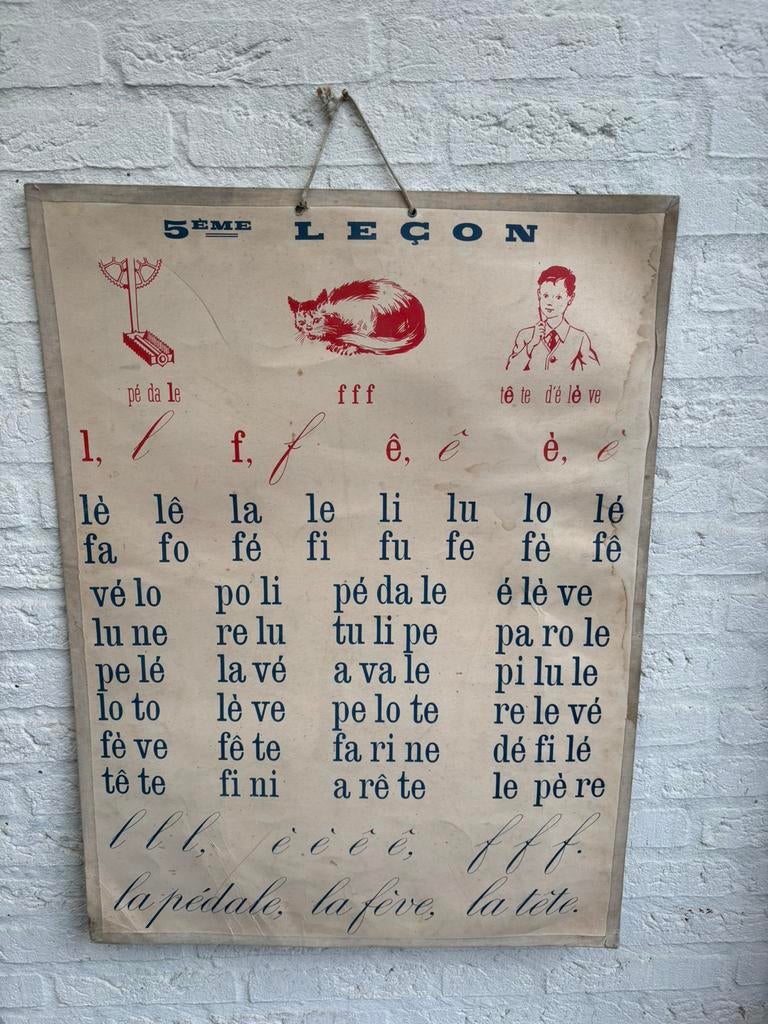 5ÈME LEÇON
pé da le fff tê te d'é lè ve
l, l f, f ê, ê è, è
lè lê la le li lu lo lé
fa fo fé fi fu fe fè fê
vé lo po li pé da le é lè ve
lu ne re lu tu li pe pa ro le
pe lé la vé a va le pi lu le
lo to lè ve pe lo te re le vé
fè ve fê te fa ri ne dé fi lé
tê te fi ni a rê te le pè re
l l l, è è ê ê, f f f.
la pédale, la fève, la tête.